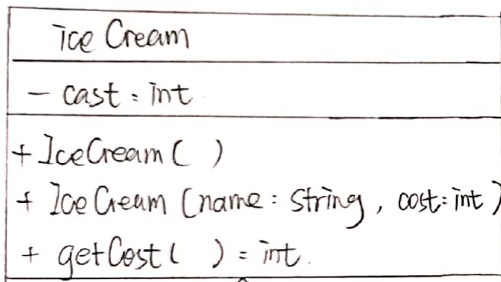 ice Cream
- cast : int
+ IceCream ( )
+ IceCream (name : String, cost : int)
+ getCost ( ) = int.